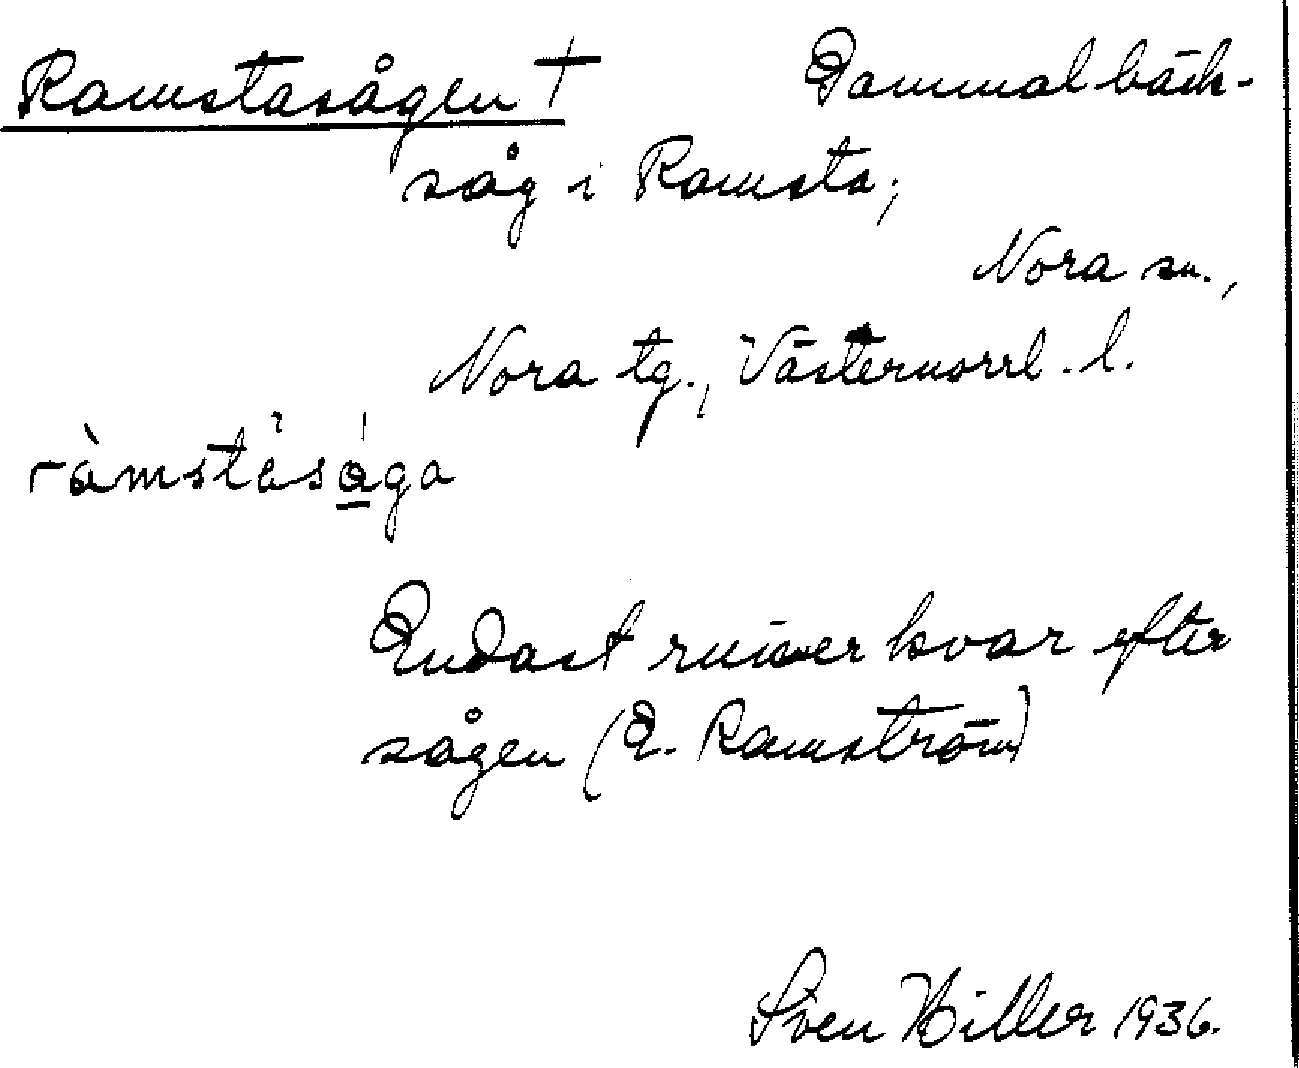 Ramstasågen † Gammal bäck-
såg i Ramsta;
Nora sn.,
Nora tg., Västernorrl. l.
ràmstẚsága
Endast ruiner kvar efter
sågen (E. Ramström)
Sven Hiller 1936.